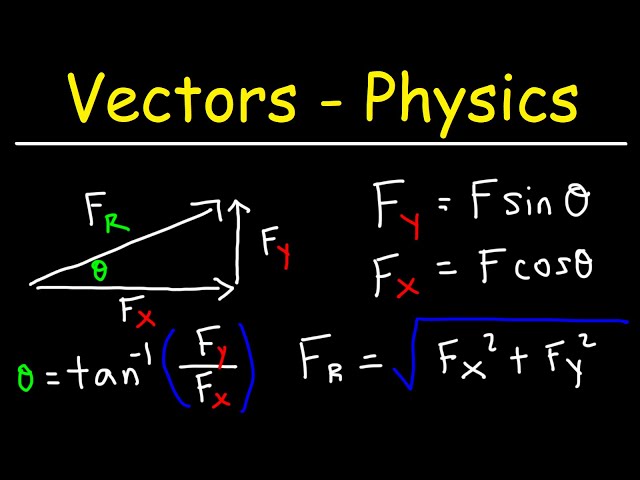 Vectors - Physics
F_R
θ
F_y
F_x
F_y = F sin θ
F_x = F cos θ
θ = tan⁻¹ (F_y / F_x)
F_R = √(F_x² + F_y²)